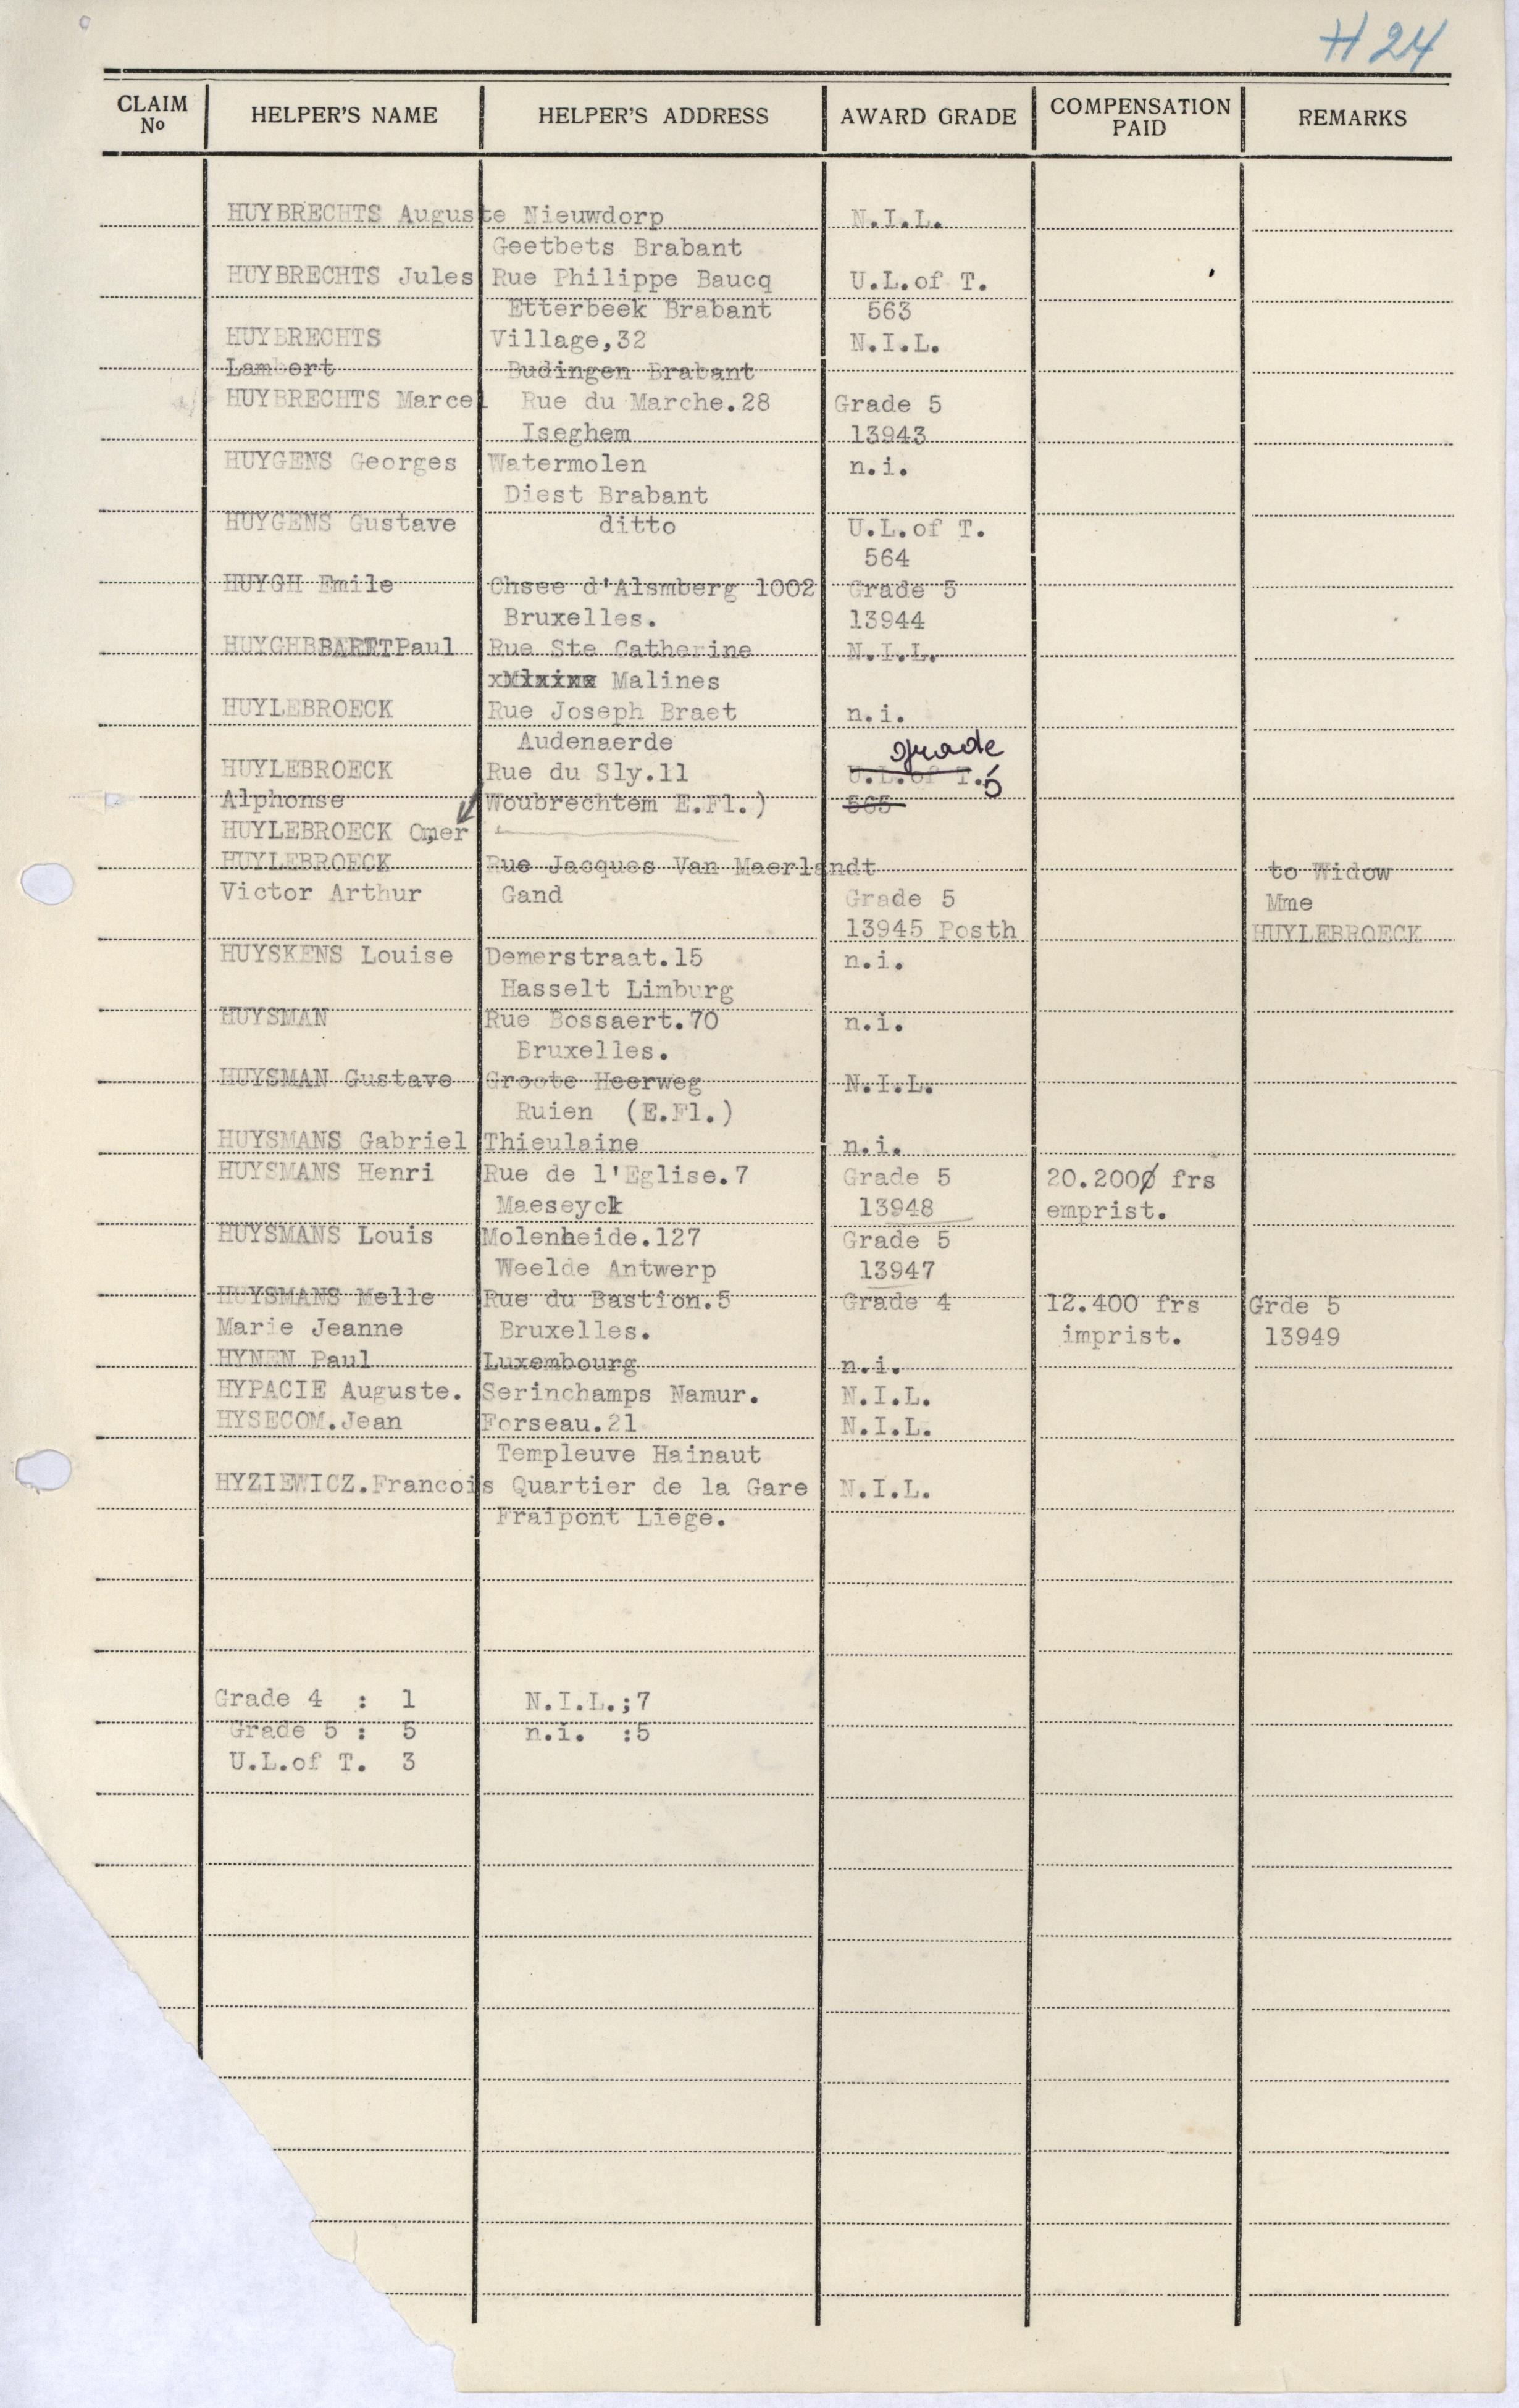 H 24
CLAIM No HELPER'S NAME HELPER'S ADDRESS AWARD GRADE COMPENSATION PAID REMARKS
HUYBRECHTS Auguste Nieuwdorp N.I.L.
Geetbets Brabant
HUYBRECHTS Jules Rue Philippe Baucq U.L.of T.
Etterbeek Brabant 563
HUYBRECHTS Village,32 N.I.L.
Lambert Budingen Brabant
HUYBRECHTS Marcel Rue du Marche.28 Grade 5
Iseghem 13943
HUYGENS Georges Watermolen n.i.
Diest Brabant
HUYGENS Gustave ditto U.L.of T.
564
HUYGH Emile Chsee d'Alsmberg 1002 Grade 5
Bruxelles. 13944
Paul Rue Ste Catherine N.I.L.
Malines
HUYLEBROECK Rue Joseph Braet n.i.
Audenaerde grade
HUYLEBROECK Rue du Sly.11 U.L.of T. 5
Alphonse Woubrechtem E.Fl.) 565
HUYLEBROECK Omer
HUYLEBROECK Rue Jacques Van Maerlandt to Widow
Victor Arthur Gand Grade 5 Mme
13945 Posth HUYLEBROECK
HUYSKENS Louise Demerstraat.15 n.i.
Hasselt Limburg
HUYSMAN Rue Bossaert.70 n.i.
Bruxelles.
HUYSMAN Gustave Groote Heerweg N.I.L.
Ruien (E.Fl.)
HUYSMANS Gabriel Thieulaine n.i.
HUYSMANS Henri Rue de l'Eglise.7 Grade 5 20.200 frs
Maeseyck 13948 emprist.
HUYSMANS Louis Molenheide.127 Grade 5
Weelde Antwerp 13947
HUYSMANS Melle Rue du Bastion.5 Grade 4 12.400 frs Grde 5
Marie Jeanne Bruxelles. imprist. 13949
HYNEN Paul Luxembourg n.i.
HYPACIE Auguste. Serinchamps Namur. N.I.L.
HYSECOM.Jean Forseau.21 N.I.L.
Templeuve Hainaut
HYZIEWICZ.Francois Quartier de la Gare N.I.L.
Fraipont Liege.
Grade 4 : 1 N.I.L.;7
Grade 5 : 5 n.i. :5
U.L.of T. 3